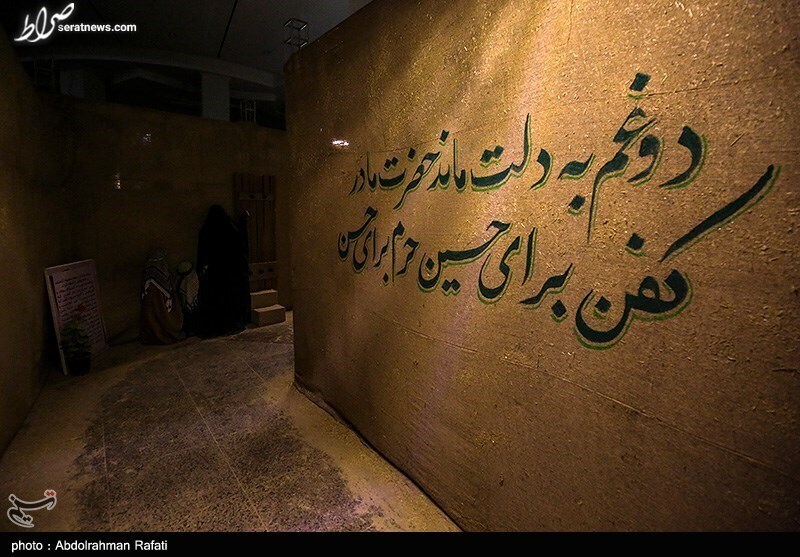 صراط
seratnews.com
دو غم به دلت ماند حضرت مادر
کفن برای حسین حرم برای حسن
تسنیم
photo : Abdolrahman Rafati